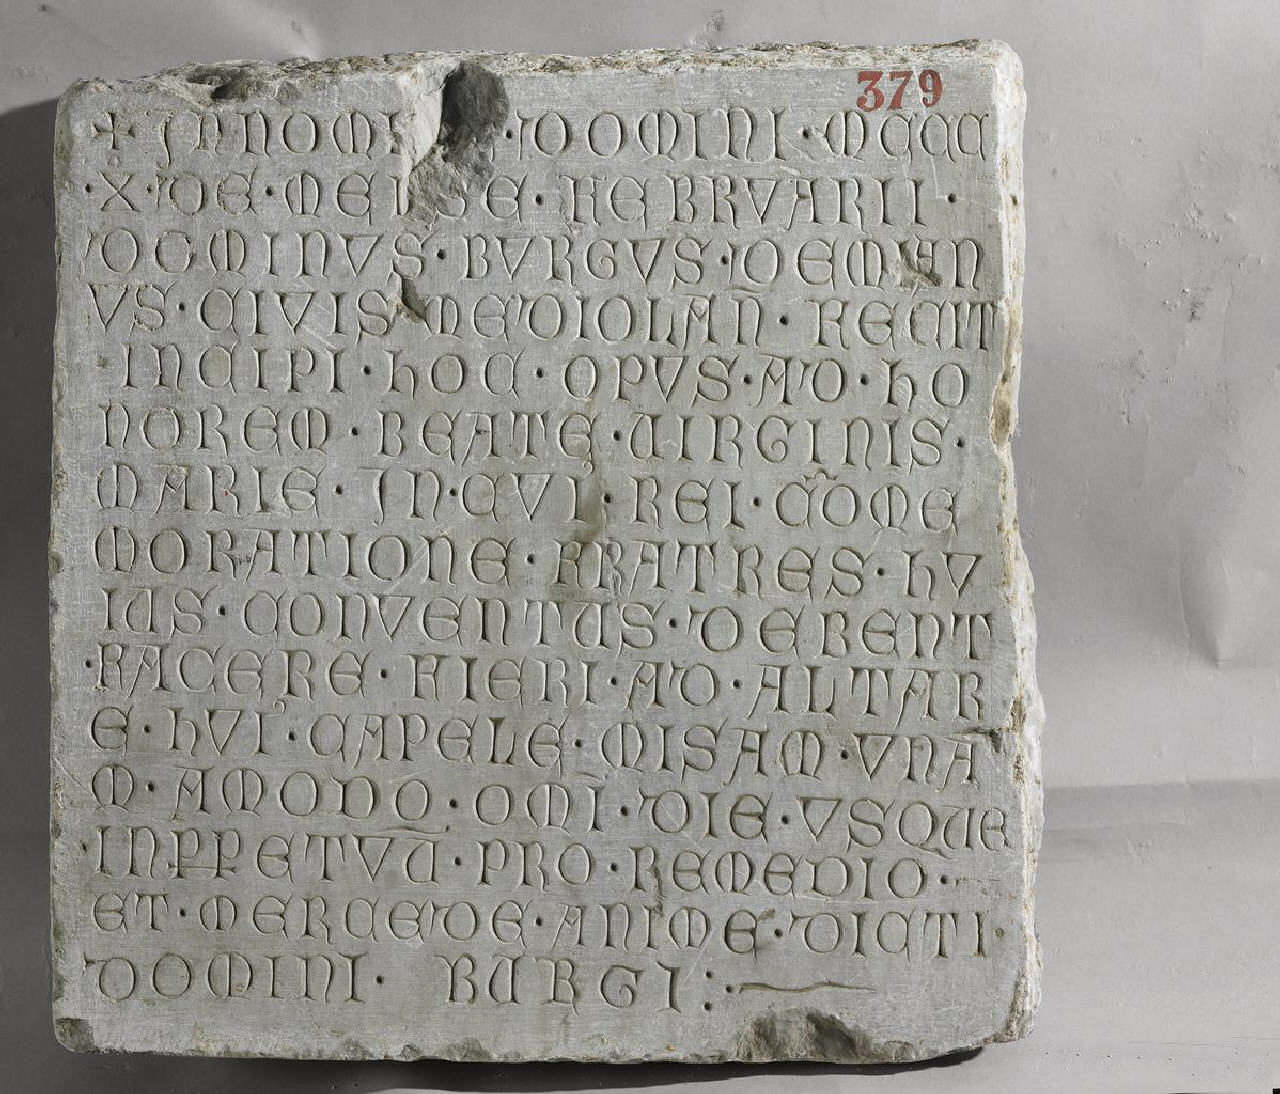 379
+ IN NOMI · DOMINI · MCCC
· X · DE · MENSE · FEBRVARII ·
DOMINVS · BVRGVS · DEMAN
VS · CIVIS MEDIOLAN · FECIT
INCIPI · HOC · OPVS · AD · HO
NOREM · BEATE · VIRGINIS ·
MARIE · IN · CVI · REI · COME
MORATIONE · FRATRES · HV
IUS · CONVENTUS · DEBENT
· FACERE · FIERI · AD · ALTAR
E · HVI · CAPELE · MISAM · VNA
M · AMODO · OMI · DIE · VSQUE
· INPPETVU · PRO · REMEDIO ·
ET · MERCEDE · ANIME · DICTI ·
DOMINI · BURGI :